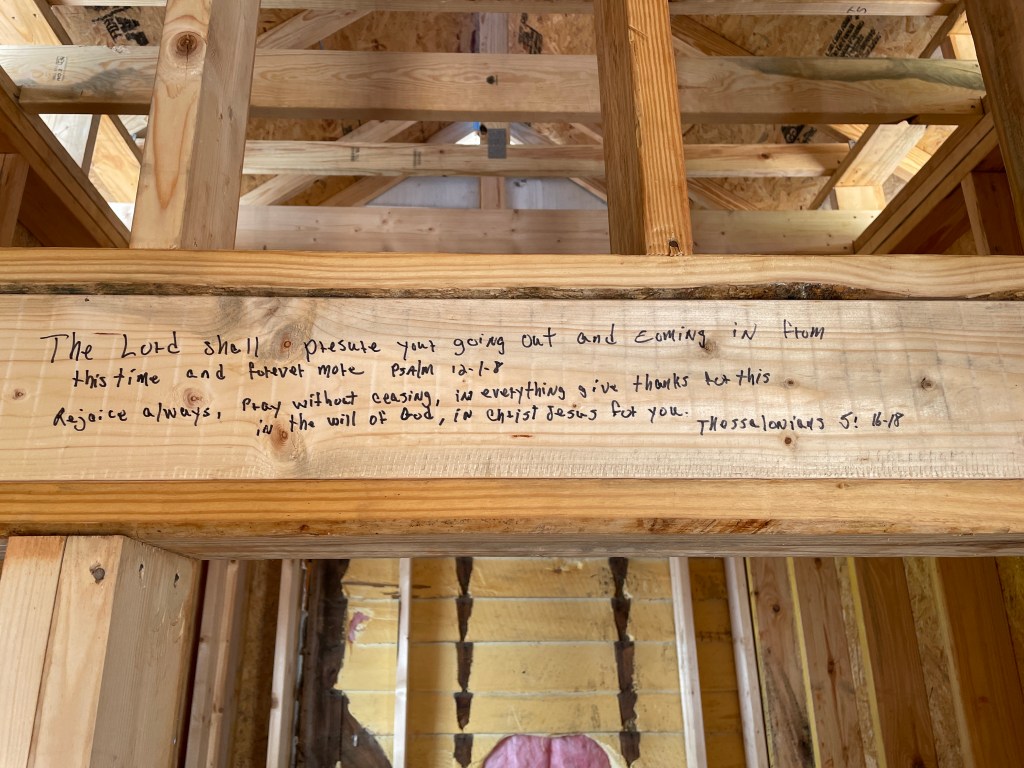 The Lord shall presure your going out and coming in from
this time and forever more Psalm 12-1-8
Rejoice always, Pray without ceasing, in everything give thanks for this
in the will of God, in Christ Jesus for you. Thessalonians 5: 16-18